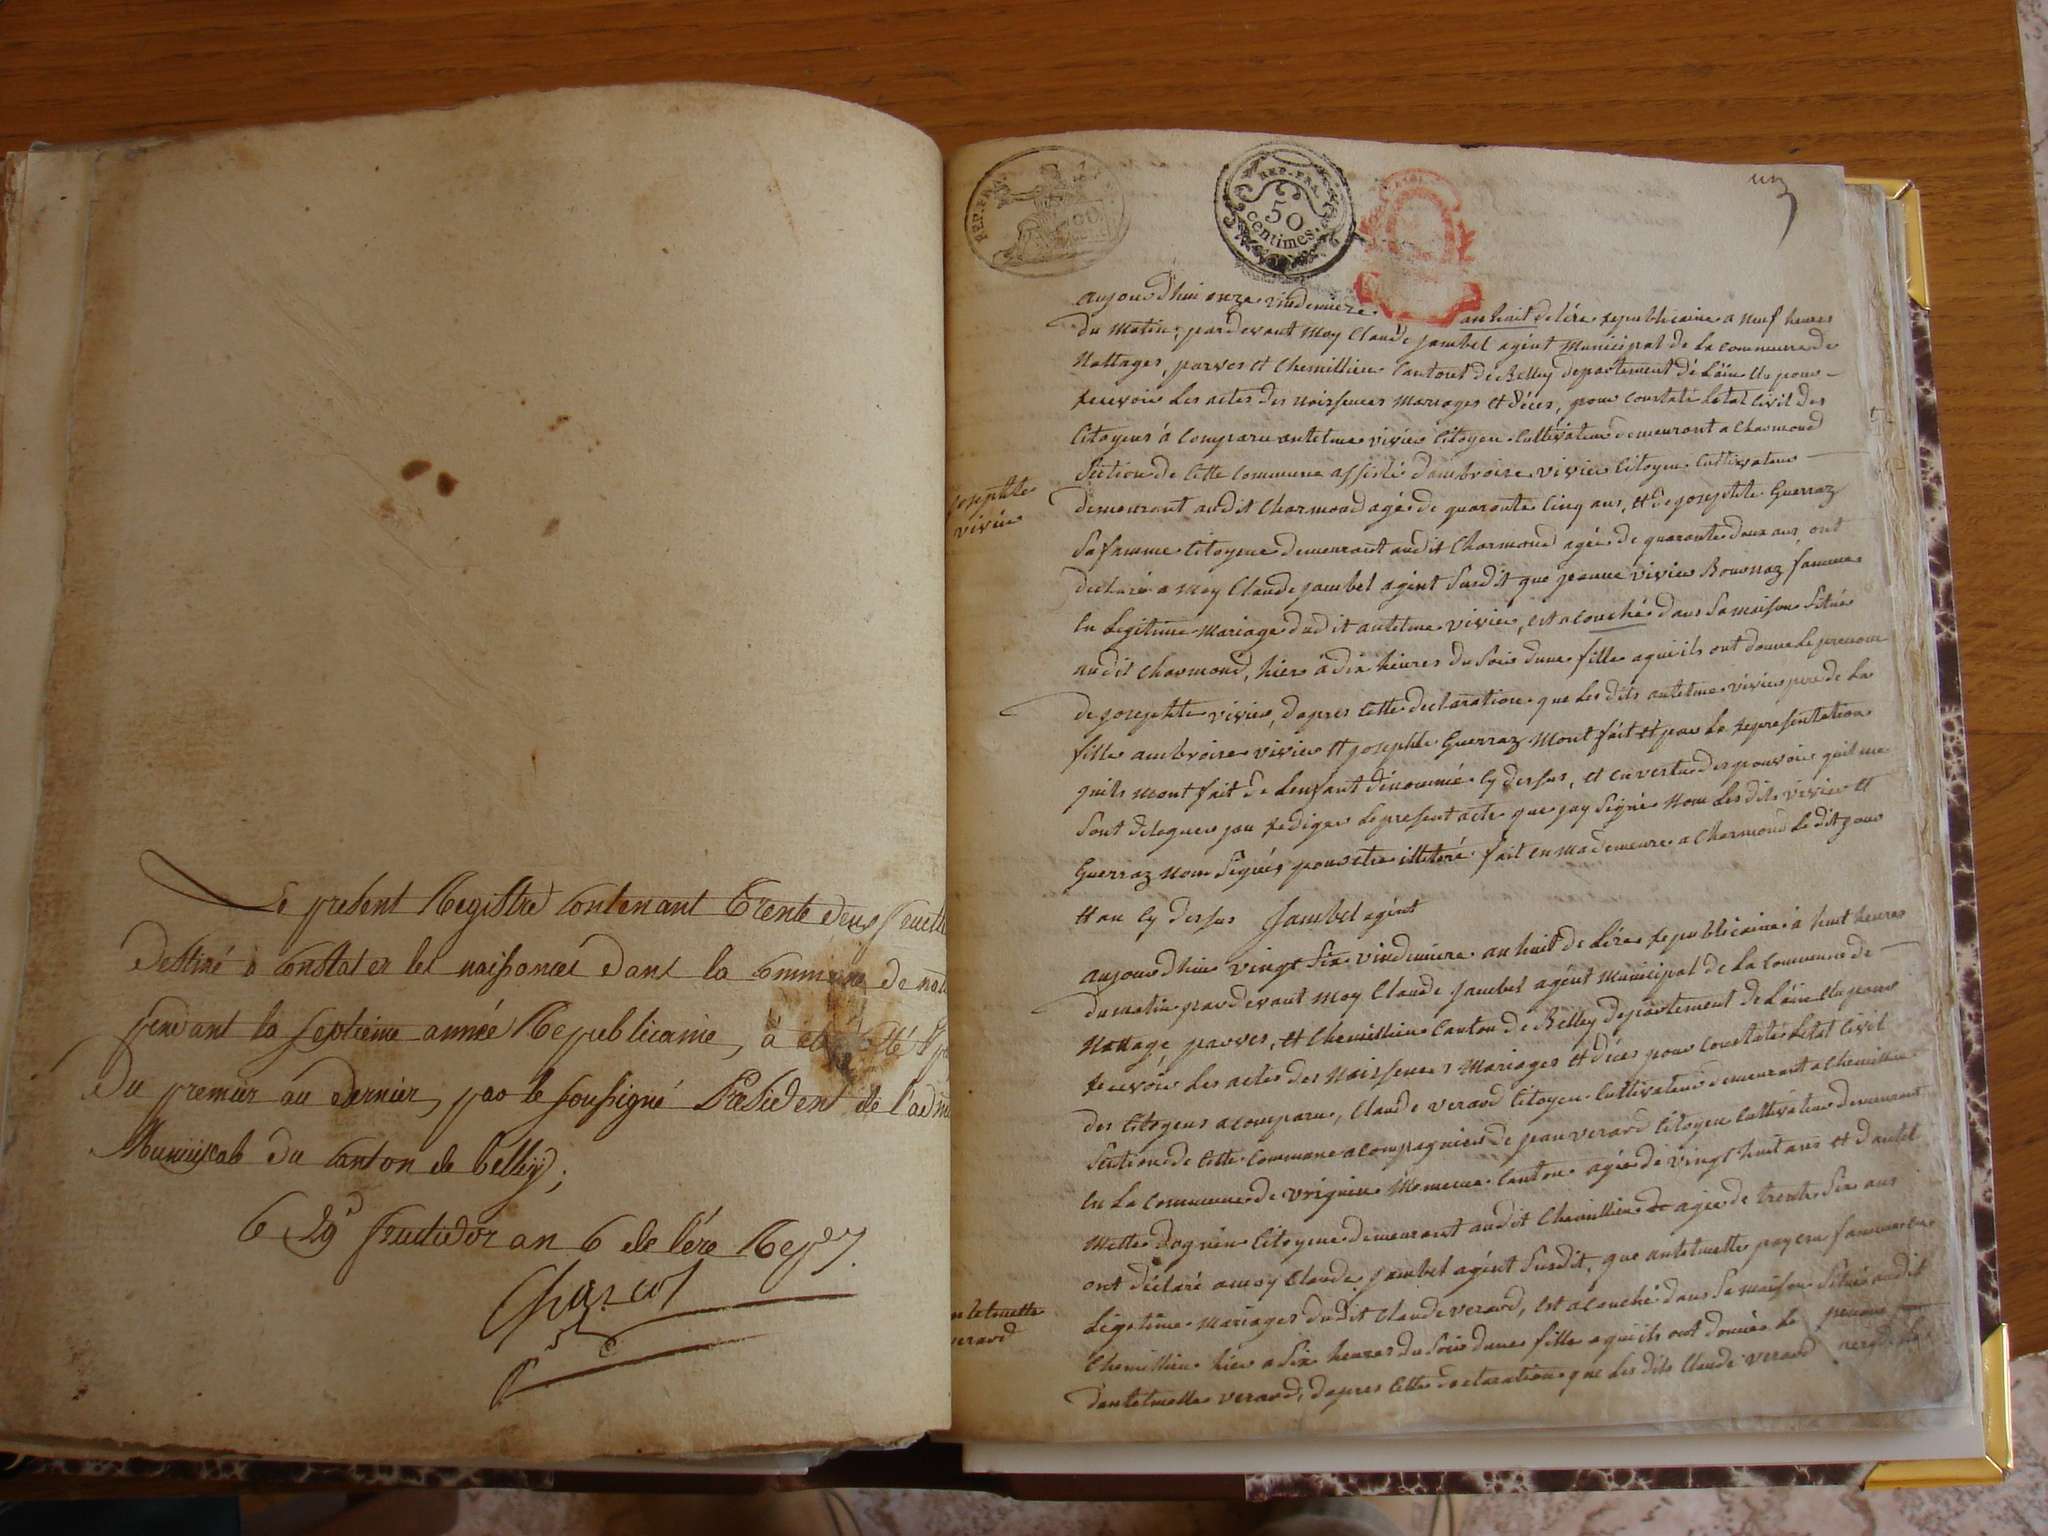 Le present Registre contenant Trente deux feuill
destiné a constater les naissances dans la commune de nat
pendant la septieme année Republicaine, à été
du premier au dernier, par le soussigné President de l'adm
Municipale du canton de belley;
le 29d fructidor an 6 de l'ére Rep
REP. FRA.
REP. FRA.
50
centimes.
un
aujourdhui onze vindemiere an huit de lére republicaine a neuf heures
du matin, pardevant moy Claude jambel agént Municipal de la commune de
Nattages, parves et Chemillieu Canton de Belley departement de Lain élu pour
recevoir les actes des naissences mariages et déces, pour constaté letat Civil des
Citoyens à comparu antelme vivier Citoyen Cultivateur demeurant a Charmond
section de cette commune assisté dambroise vivier Citoyen Cultivateur
josephte
vivier
demeurant audit Charmond agé de quarante cinq ans, et de josephte Guerraz
sa famme Citoyene demeurant audit Charmond agée de quarante deux ans, ont
declaré a moy Claude jambel agént susdit que jeanne vivier Bournaz famme
en legitime mariage dudit antelme vivier, est acouché dans sa maison située
audit Charmond, hier à dix heures du soir dune fille aqui ils ont donné le prenom
de josephte vivier, dapres cette declaration que les dits antelme vivier pere de la
fille ambroise vivier et josephte Guerraz mont fait et par la representation
quils mont fait de lenfant dénommé cy dessus, et en vertu des pouvoirs quil me
sont delegues jai rediger le present acte que jay signé non les dits vivier et
Guerraz non signés pour etre illiteré fait en ma demeure a Charmond le dit jour
et an cy dessus jambel agént
aujourdhui vingt six vindemiere an huit de lére republicaine à huit heures
du matin pardevant moy Claude jambel agént municipal de la commune de
Nattage parves, et Chemillieu Canton de Belley departement de Lain élu pour
recevoir les actes des naissences mariages et déces pour constaté letat Civil
des Citoyens acomparu, Claude verard Citoyen Cultivateur demeurant a Chemillieu
section de cette commune acompagnier de jean verard Citoyen Cultivateur demeurant
en la commune de vrignin méme Canton agée de vingt huit ans et dantel
mette dognin Citoyene demeurant audit Chemillieu agée de trente six ans
ont déclaré amoy Claude jambel agént susdit, que antelmette payen famme en
antelmette
verard
Legitime mariages dudit Claude verard, est acouché dans sa maison située audit
Chemillieu hier a six heures du soir dune fille aqui ils ont donnée le prenom
dantelmette verard, dapres cette declaration que les dits Claude verard